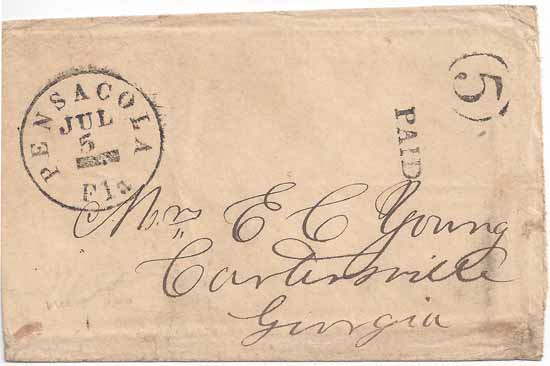 PENSACOLA
JUL
5
Fla
(5)
PAID
Mrs E C Young
Cartersville
Georgia